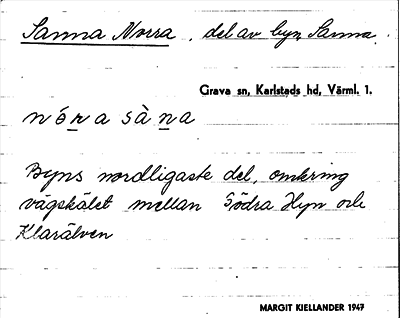 Sanna Norra, del av byn Sanna.
Grava sn, Karlstads hd, Värml. 1.
nó̱ṟa sàṉa
Byns nordligaste del, omkring
vägskälet mellan Södra Hyn och
Klarälven
MARGIT KIELLANDER 1947